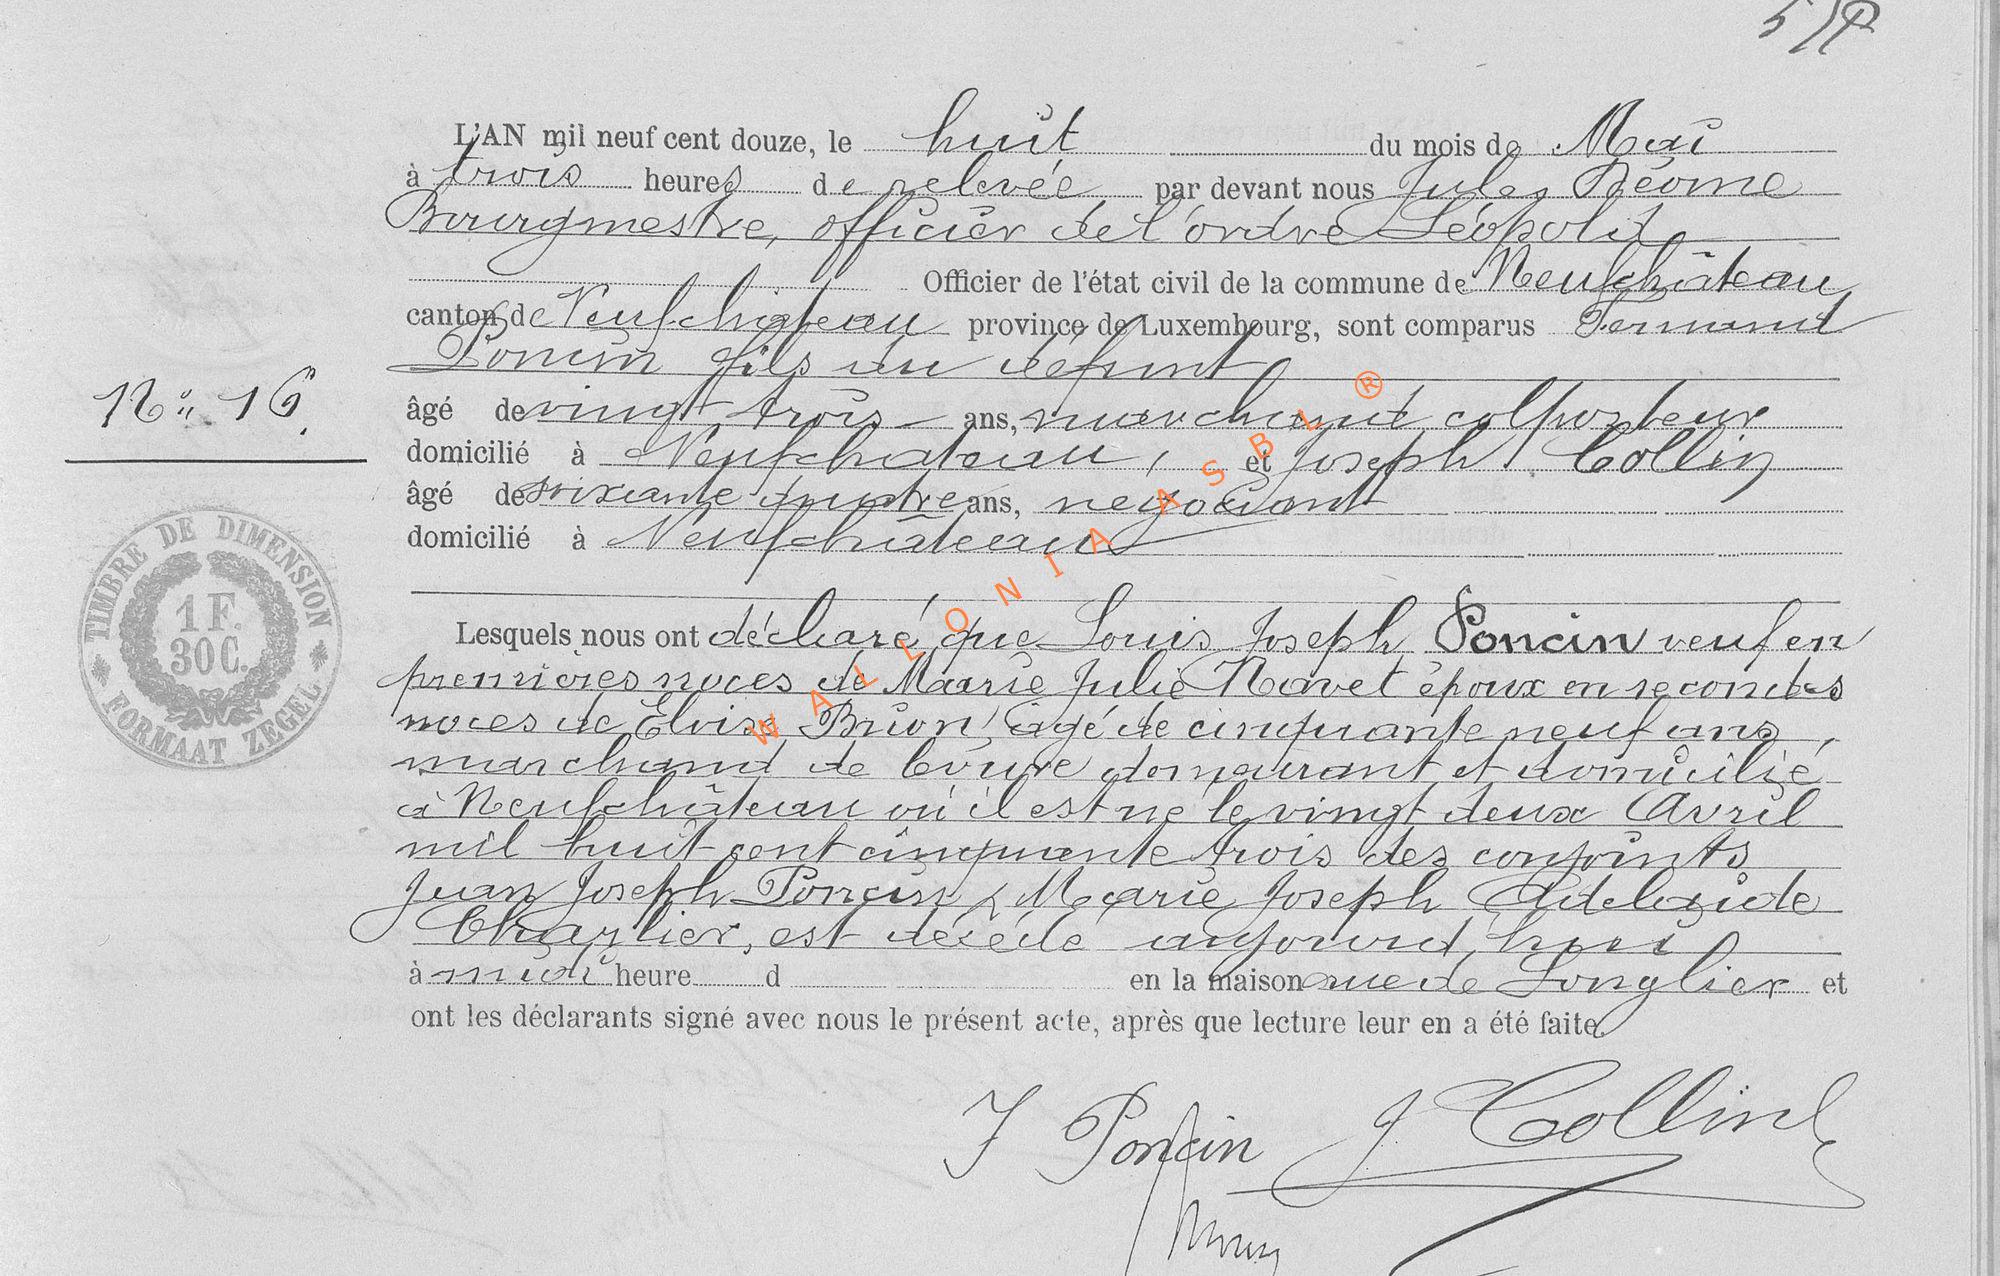 L'AN mil neuf cent douze, le huit du mois de Mai
à trois heures de relevée par devant nous Jules Déome
Bourgmestre, officier de l'ordre Léopold
Officier de l'état civil de la commune de Neufchâteau
canton de Neufchâteau province de Luxembourg, sont comparus Fernand
Poncin fils du défunt
N° 16.
âgé de vingt trois ans, marchand colporteur
domicilié à Neufchâteau, et Joseph Collin
âgé de soixante quatre ans, négociant
domicilié à Neufchâteau
TIMBRE DE DIMENSION
1 F.
30 C.
FORMAAT ZEGEL
Lesquels nous ont déclaré que Louis Joseph Poncin veuf en
premières noces de Marie Julie Navet époux en secondes
noces de Elvise Brion, âgé de cinquante neuf ans,
marchand de levure demeurant et domicilié
à Neufchâteau où il est né le vingt deux Avril
mil huit cent cinquante trois des conjoints
Jean Joseph Poncin & Marie Joseph Adelaïde
Charlier, est décédé aujourd'hui
à midi heure d en la maison rue de Longlier et
ont les déclarants signé avec nous le présent acte, après que lecture leur en a été faite.
F Poncin J Collin
WALLONIA ASBL ®